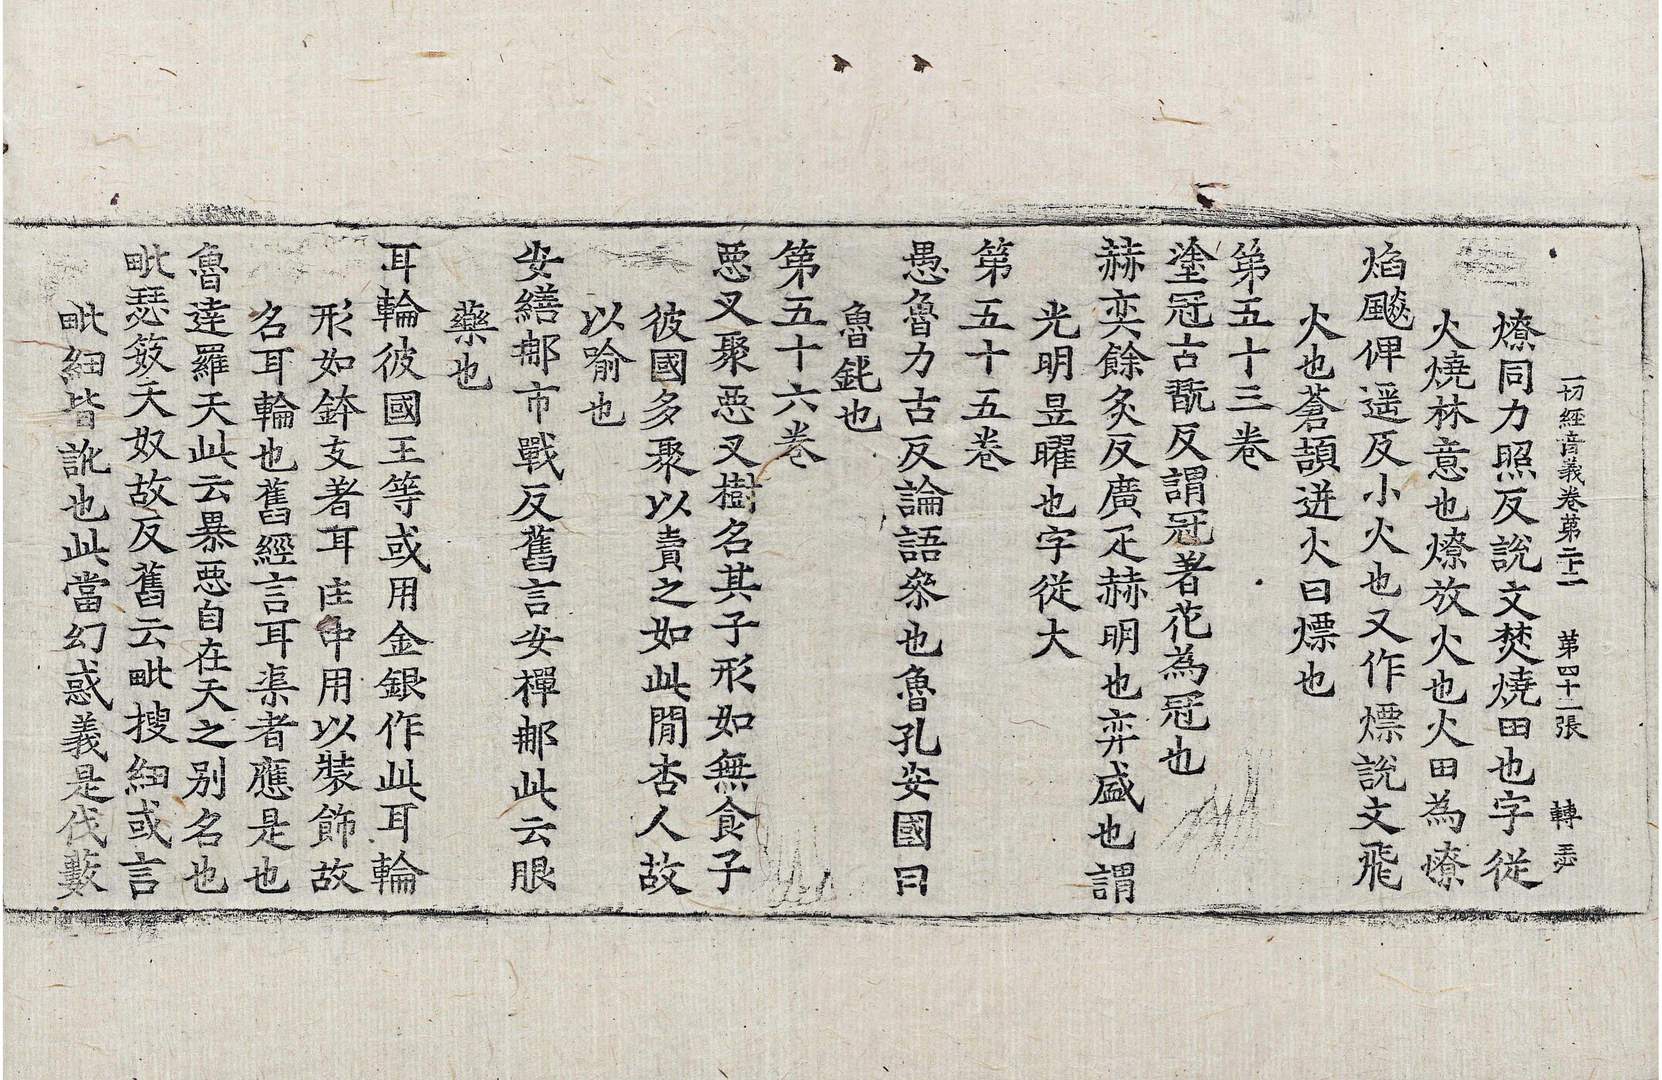 一切經音義卷苐二十二　苐四十二張　轉　㻎
燎同力照反說文焚燒田也字從
火燒林意也燎放火也火田為燎
焰飈俾遥反小火也又作熛說文飛
火也蒼頡迸火曰熛也
苐五十三卷
塗冠古翫反謂冠著花為冠也
赫奕餘炙反廣疋赫明也弈盛也謂
光明昱曜也字從大
苐五十五卷
愚魯力古反論語叅也魯孔安國曰
魯鈍也
苐五十六卷
惡叉聚惡叉樹名其子形如無食子
彼國多聚以賣之如此間杏人故
以喻也
安繕那市戰反舊言安禪那此云眼
藥也
耳輪彼國王等或用金銀作此耳輪
形如鉢支著耳㽵中用以裝飾故
名耳輪也舊經言耳渠者應是也
魯達羅天此云暴惡自在天之别名也
毗瑟笯天奴故反舊云毗搜紐或言
毗紐皆訛也此當幻惑義是伐藪